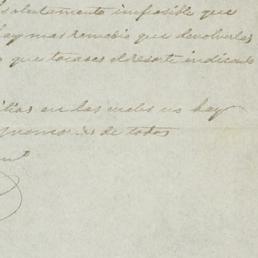 absolutamente imposible que
hay mas remedio que devolverlas
que tocases el resorte indicado
en las cuales no hay
memorias de todos